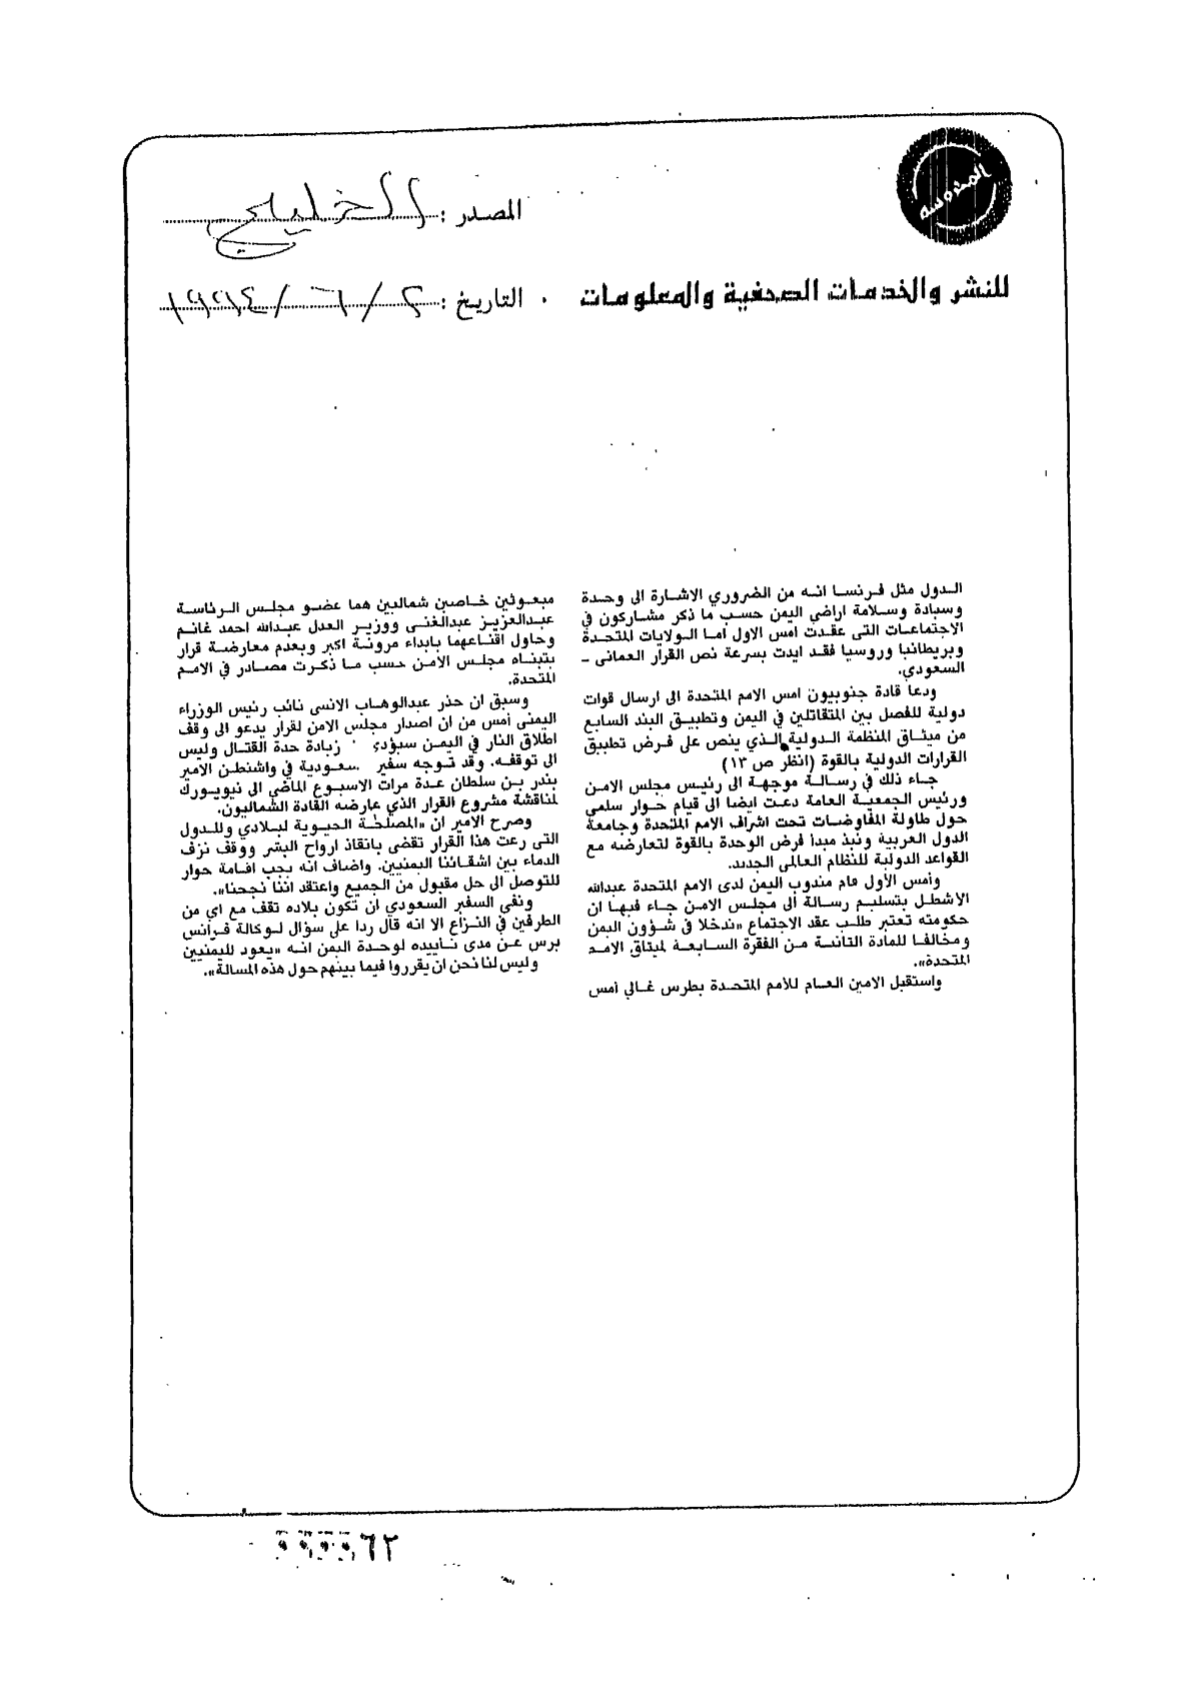 المحروسة
المصدر : الخليج
للنشر والخدمات الصحفية والمعلومات
التاريخ : ٢ / ٦ / ١٩٩٤
الدول مثل فرنسا انه من الضروري الاشارة الى وحدة
وسيادة وسلامة اراضي اليمن حسب ما ذكر مشاركون في
الاجتماعات التي عقدت امس الاول أما الولايات المتحدة
وبريطانيا وروسيا فقد ايدت بسرعة نص القرار العمانى -
السعودي.
ودعا قادة جنوبيون امس الامم المتحدة الى ارسال قوات
دولية للفصل بين المتقاتلين في اليمن وتطبيق البند السابع
من ميثاق المنظمة الدولية الذي ينص على فرض تطبيق
القرارات الدولية بالقوة (انظر ص ١٣)
جاء ذلك في رسالة موجهة الى رئيس مجلس الامن
ورئيس الجمعية العامة دعت ايضا الى قيام حوار سلمي
حول طاولة المفاوضات تحت اشراف الامم المتحدة وجامعة
الدول العربية ونبذ مبدأ فرض الوحدة بالقوة لتعارضه مع
القواعد الدولية للنظام العالمي الجديد.
وأمس الأول قام مندوب اليمن لدى الامم المتحدة عبدالله
الاشطل بتسليم رسالة الى مجلس الامن جاء فيها ان
حكومته تعتبر طلب عقد الاجتماع «تدخلا في شؤون اليمن
ومخالفا للمادة الثانية من الفقرة السابعة لميثاق الامم
المتحدة».
واستقبل الامين العام للأمم المتحدة بطرس غالي أمس
مبعوثين خاصين شماليين هما عضو مجلس الرئاسة
عبدالعزيز عبدالغنى ووزير العدل عبدالله احمد غانم
وحاول اقناعهما بابداء مرونة اكبر وبعدم معارضة قرار
يتبناه مجلس الأمن حسب ما ذكرت مصادر في الامم
المتحدة.
وسبق ان حذر عبدالوهاب الانسى نائب رئيس الوزراء
اليمنى أمس من ان اصدار مجلس الامن لقرار يدعو الى وقف
اطلاق النار في اليمن سيؤدي زيادة حدة القتال وليس
الى توقفه. وقد توجه سفير سعودية في واشنطن الامير
بندر بن سلطان عدة مرات الاسبوع الماضي الى نيويورك
لمناقشة مشروع القرار الذي عارضه القادة الشماليون.
وصرح الامير ان «المصلحة الحيوية لبلادي وللدول
التى رعت هذا القرار تقضى بانقاذ ارواح البشر ووقف نزف
الدماء بين اشقائنا اليمنيين. واضاف انه يجب اقامة حوار
للتوصل الى حل مقبول من الجميع واعتقد اننا نجحنا».
ونفى السفير السعودي ان تكون بلاده تقف مع اي من
الطرفين في النزاع الا انه قال ردا على سؤال لوكالة فرانس
برس عن مدى تأييده لوحدة اليمن انه «يعود لليمنيين
وليس لنا نحن ان يقرروا فيما بينهم حول هذه المسالة».